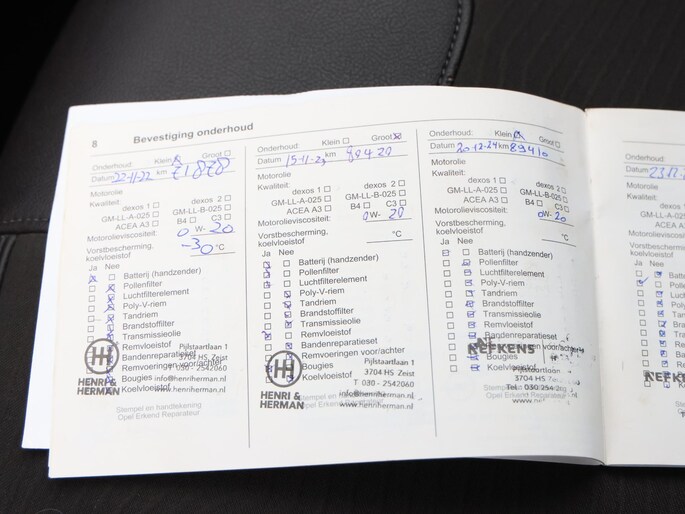 8 Bevestiging onderhoud
Onderhoud: Klein Groot
Datum 22-11-22 km
Motorolie
Kwaliteit:
dexos 1 dexos 2
GM-LL-A-025 GM-LL-B-025
ACEA A3 B4 C3
Motorolieviscositeit: 0 W- 20
Vorstbescherming,
koelvloeistof -30 °C
Ja Nee
Batterij (handzender)
Pollenfilter
Luchtfilterelement
Poly-V-riem
Tandriem
Brandstoffilter
Transmissieolie
Remvloeistof
Bandenreparatieset
Remvoeringen voor/achter
Bougies
Koelvloeistof
HENRI & HERMAN
Pijlstaartlaan 1
3704 HS Zeist
T 030 - 2542060
info@henriherman.nl
www.henriherman.nl
Stempel en handtekening
Opel Erkend Reparateur
Onderhoud: Klein Groot
Datum 15-11-23 km 80420
Motorolie
Kwaliteit:
dexos 1 dexos 2
GM-LL-A-025 GM-LL-B-025
ACEA A3 B4 C3
Motorolieviscositeit: 0 W- 20
Vorstbescherming,
koelvloeistof °C
Ja Nee
Batterij (handzender)
Pollenfilter
Luchtfilterelement
Poly-V-riem
Tandriem
Brandstoffilter
Transmissieolie
Remvloeistof
Bandenreparatieset
Remvoeringen voor/achter
Bougies
Koelvloeistof
HENRI & HERMAN
Pijlstaartlaan 1
3704 HS Zeist
T 030 - 2542060
info@henriherman.nl
www.henriherman.nl
Stempel en
Opel Erkend Reparateur
Onderhoud: Klein Groot
Datum 20-12-24 km 89410
Motorolie
Kwaliteit:
dexos 1 dexos 2
GM-LL-A-025 GM-LL-B-025
ACEA A3 B4 C3
Motorolieviscositeit: 0W- 20
Vorstbescherming,
koelvloeistof °C
Ja Nee
Batterij (handzender)
Pollenfilter
Luchtfilterelement
Poly-V-riem
Tandriem
Brandstoffilter
Transmissieolie
Remvloeistof
Bandenreparatieset
Remvoeringen voor/achter
Bougies
Koelvloeistof
REFKENS
3704 HS
Tel. 030 254
www.
Stempel en
Opel Erkend Reparateur
Onderhoud
Datum
Motorolie
Kwaliteit:
GM-LL-A
ACE
Motorolieviscositeit
Vorstbescherming,
koelvloeistof
Ja Nee